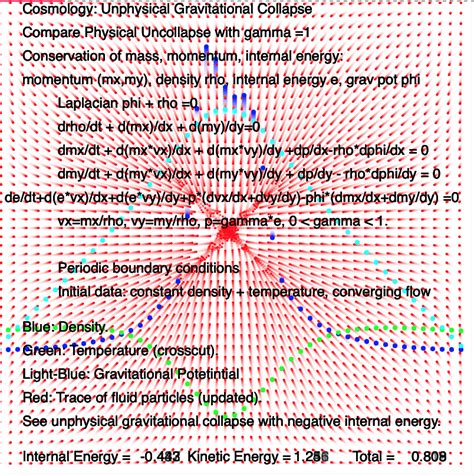 Cosmology: Unphysical Gravitational Collapse
Compare Physical Uncollapse with gamma =1
Conservation of mass, momentum, internal energy:
momentum (mx,my), density rho, internal energy e, grav pot phi
Laplacian phi + rho =0
drho/dt + d(mx)/dx + d(my)/dy=0
dmx/dt + d(mx*vx)/dx + d(mx*vy)/dy +dp/dx-rho*dphi/dx = 0
dmy/dt + d(my*vx)/dx + d(my*vy)/dy + dp/dy - rho*dphi/dy = 0
de/dt+d(e*vx)/dx+d(e*vy)/dy+p*(dvx/dx+dvy/dy)-phi*(dmx/dx+dmy/dy) =0
vx=mx/rho, vy=my/rho, p=gamma*e, 0 < gamma < 1.
Periodic boundary conditions
Initial data: constant density + temperature, converging flow
Blue: Density.
Green: Temperature (crosscut).
Light-Blue: Gravitational Potetintial
Red: Trace of fluid particles (updated).
See unphysical gravitational collapse with negative internal energy.
Internal Energy = Kinetic Energy = Total =